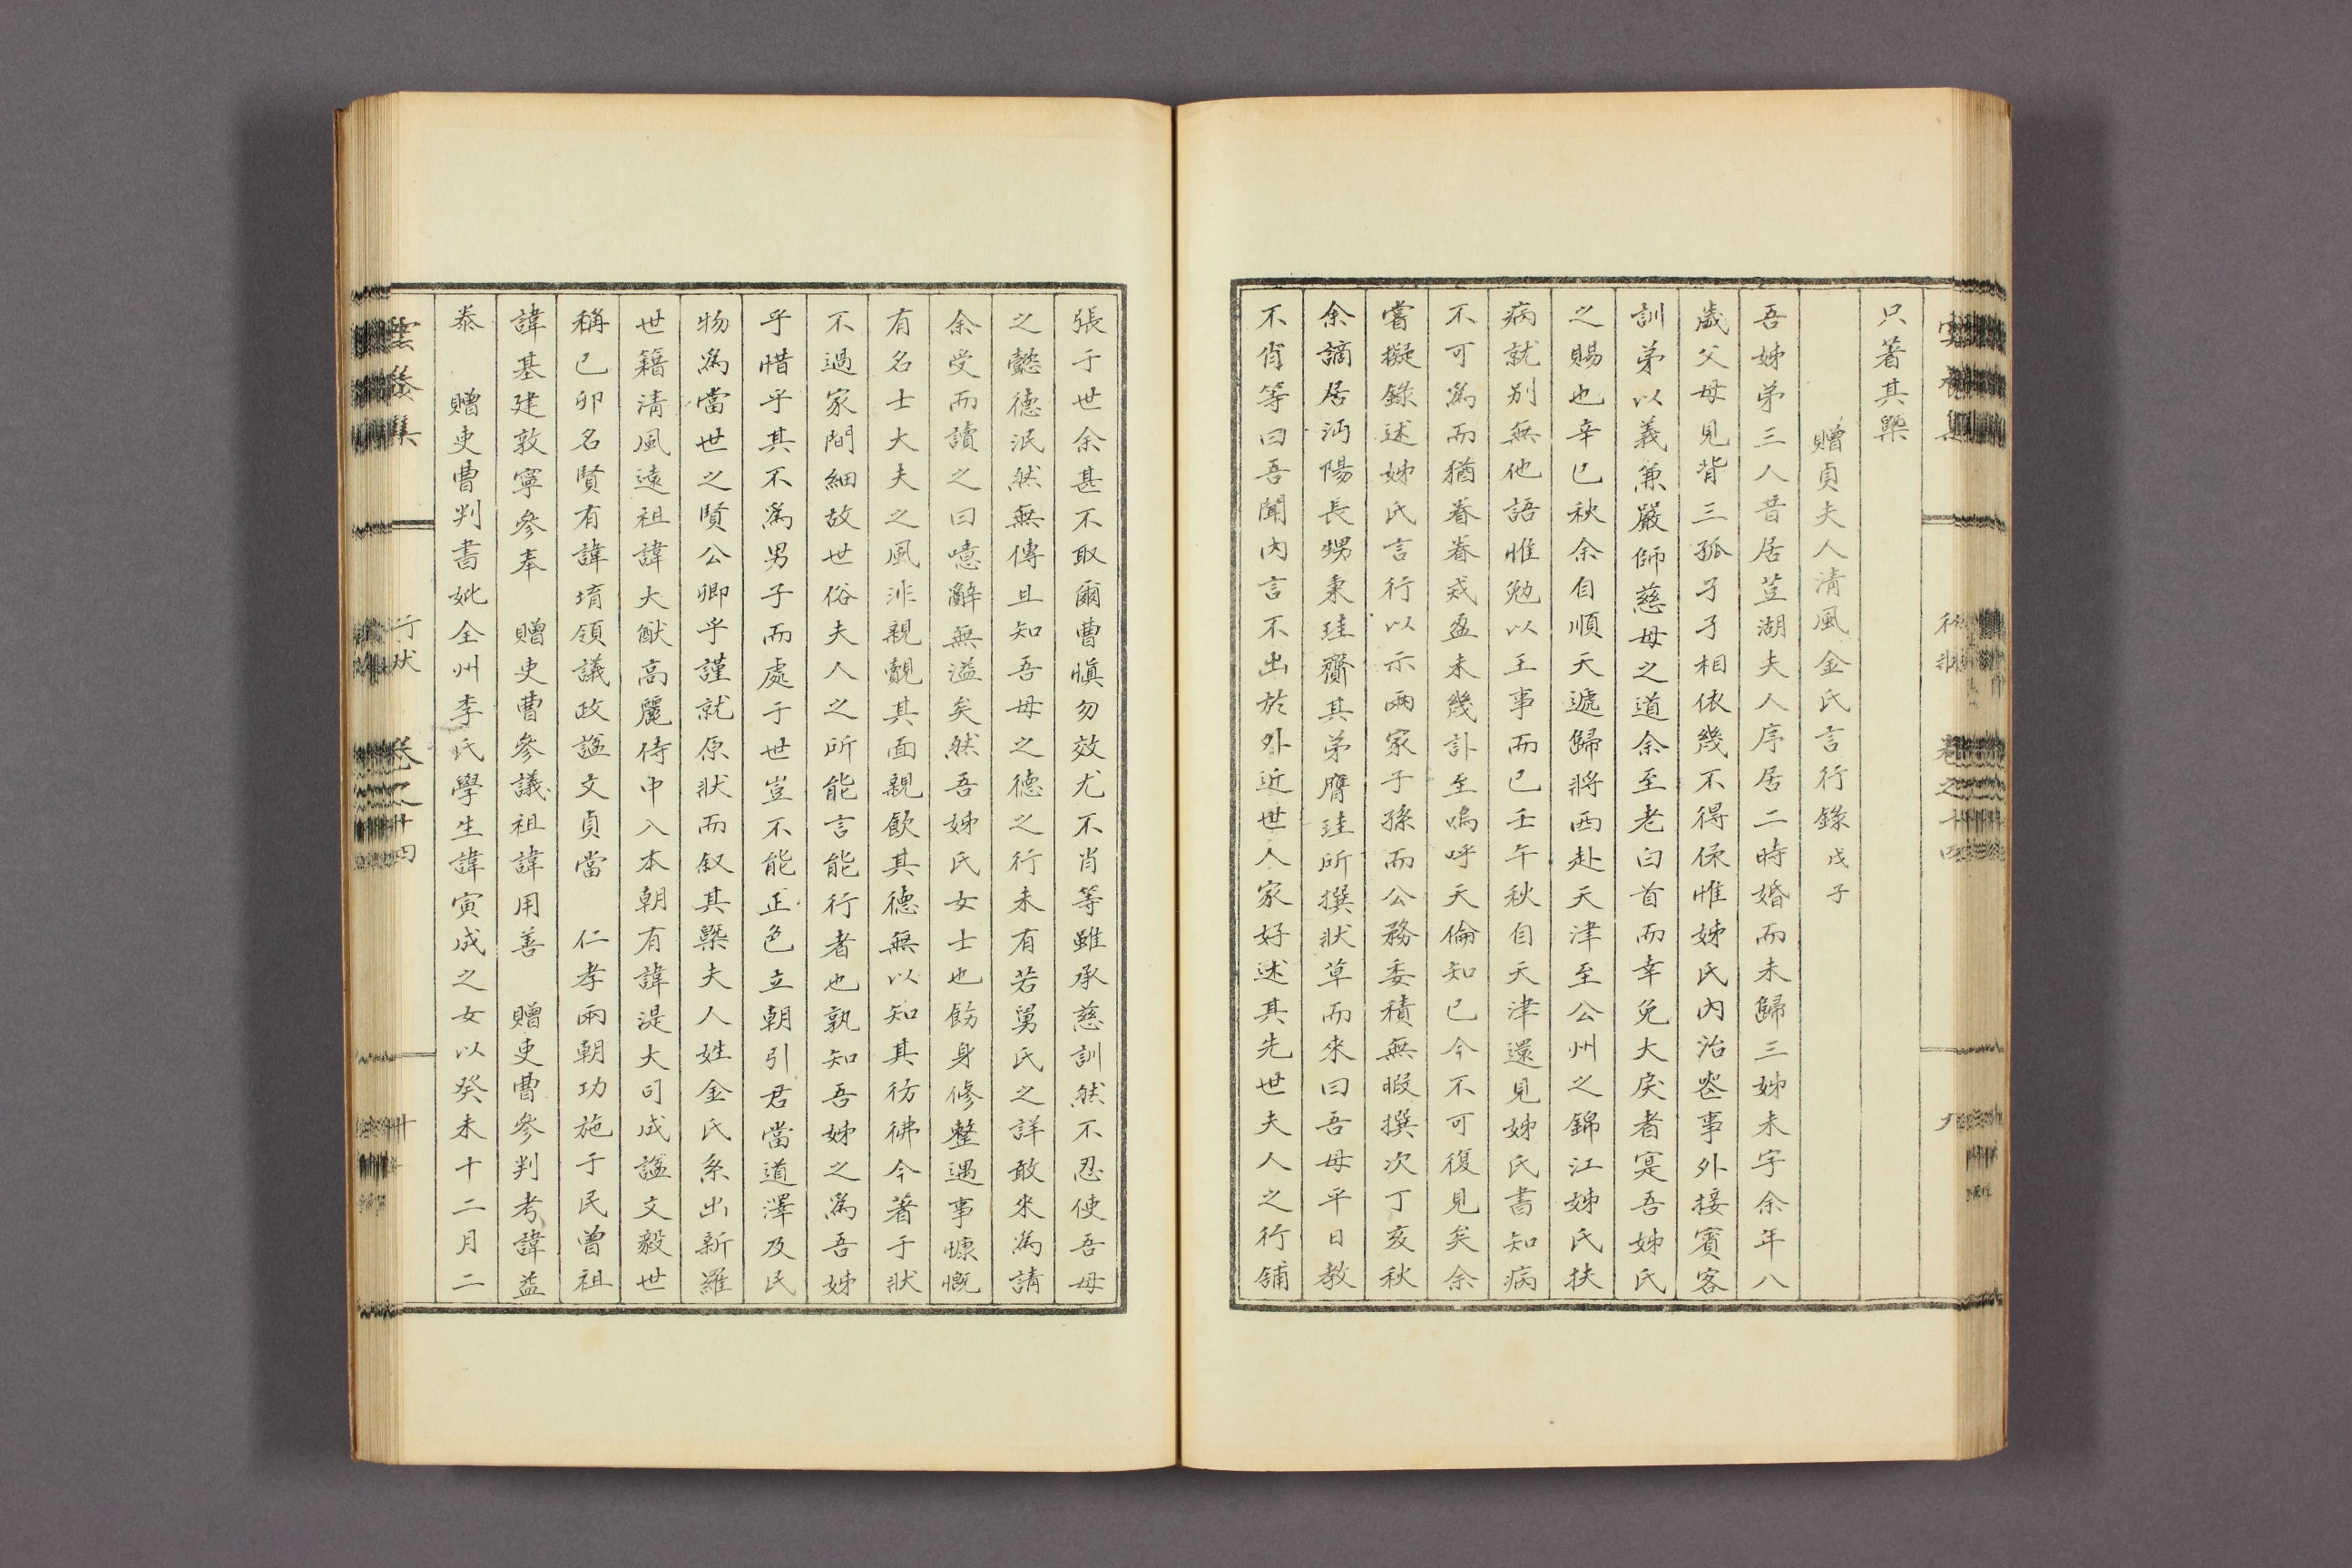 只著其槩
贈貞夫人清風金氏言行錄 戊子
吾姊弟三人昔居荳湖夫人序居二時婚而未歸三姊未字余年八
歲父母見背三孤孑孑相依幾不得保惟姊氏內治喪事外接賓客
訓弟以義兼嚴師慈母之道余至老白首而幸免大戾者寔吾姊氏
之賜也辛巳秋余自順天遞歸將西赴天津至公州之錦江姊氏扶
病就别無他語惟勉以王事而已壬午秋自天津還見姊氏書知病
不可爲而猶眷眷戒盈未幾訃至嗚呼天倫知己今不可復見矣余
嘗擬錄述姊氏言行以示兩家子孫而公務委積無暇撰次丁亥秋
余謫居沔陽長甥秉珪齎其弟膺珪所撰狀草而來曰吾母平日教
不肖等曰吾聞內言不出於外近世人家好述其先世夫人之行鋪
張于世余甚不取爾曹愼勿效尤不肖等雖承慈訓然不忍使吾母
之懿德泯然無傳且知吾母之德之行未有若舅氏之詳敢來爲請
余受而讀之曰噫辭無溢矣然吾姊氏女士也飭身修整遇事慷慨
有名士大夫之風非親覿其面親飮其德無以知其彷彿今著于狀
不過家間細故世俗夫人之所能言能行者也孰知吾姊之爲吾姊
乎惜乎其不爲男子而處于世豈不能正色立朝引君當道澤及民
物爲當世之賢公卿乎謹就原狀而叙其槩夫人姓金氏系出新羅
世籍淸風遠祖諱大猷高麗侍中入本朝有諱湜大司成諡文毅世
稱己卯名賢有諱堉領議政諡文貞當 仁孝兩朝功施于民曾祖
諱基建敦寧參奉 贈吏曹參議祖諱用善 贈吏曹參判考諱益
泰 贈吏曹判書妣全州李氏學生諱寅成之女以癸未十二月二
行狀 卷之十四 十